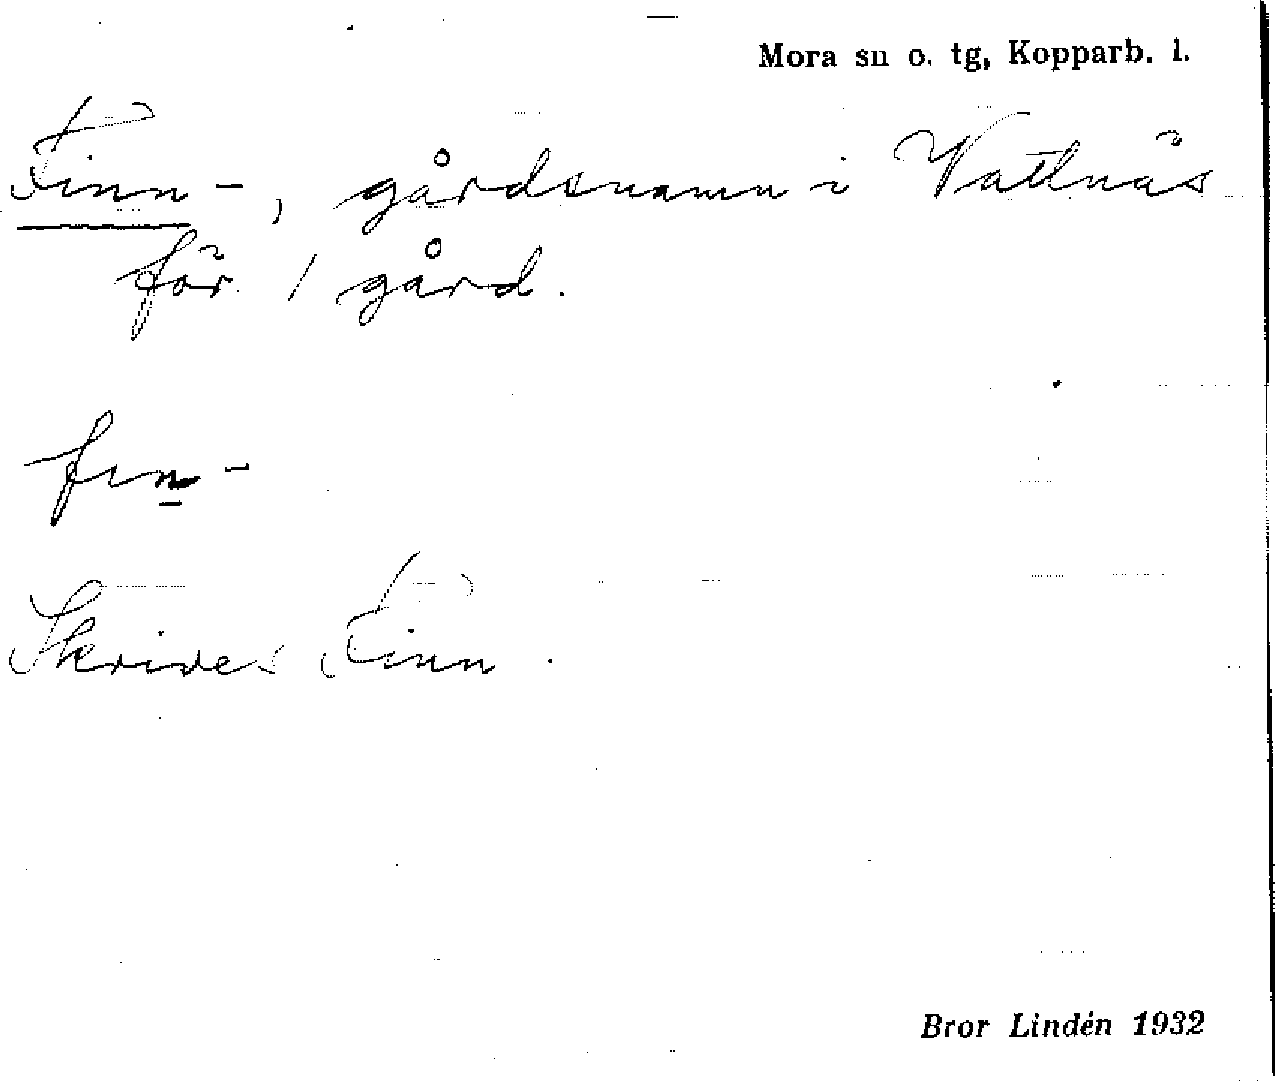 Mora sn o. tg, Kopparb. l.
Finn-, gårdsnamn i Vattnäs
för 1 gård.
fin-
Skrives Finn.
Bror Lindén 1932